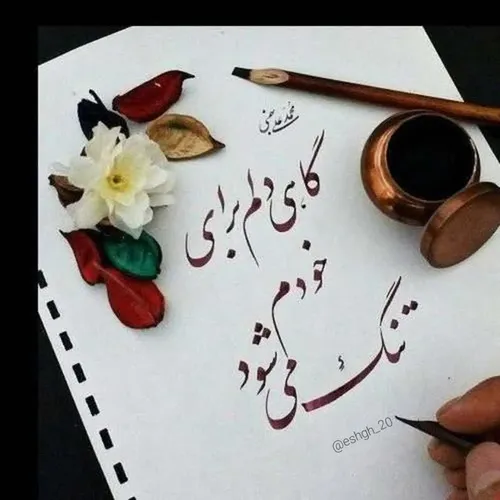 گاهی دلم برای
خودم
تنگ می شود
@eshgh_20